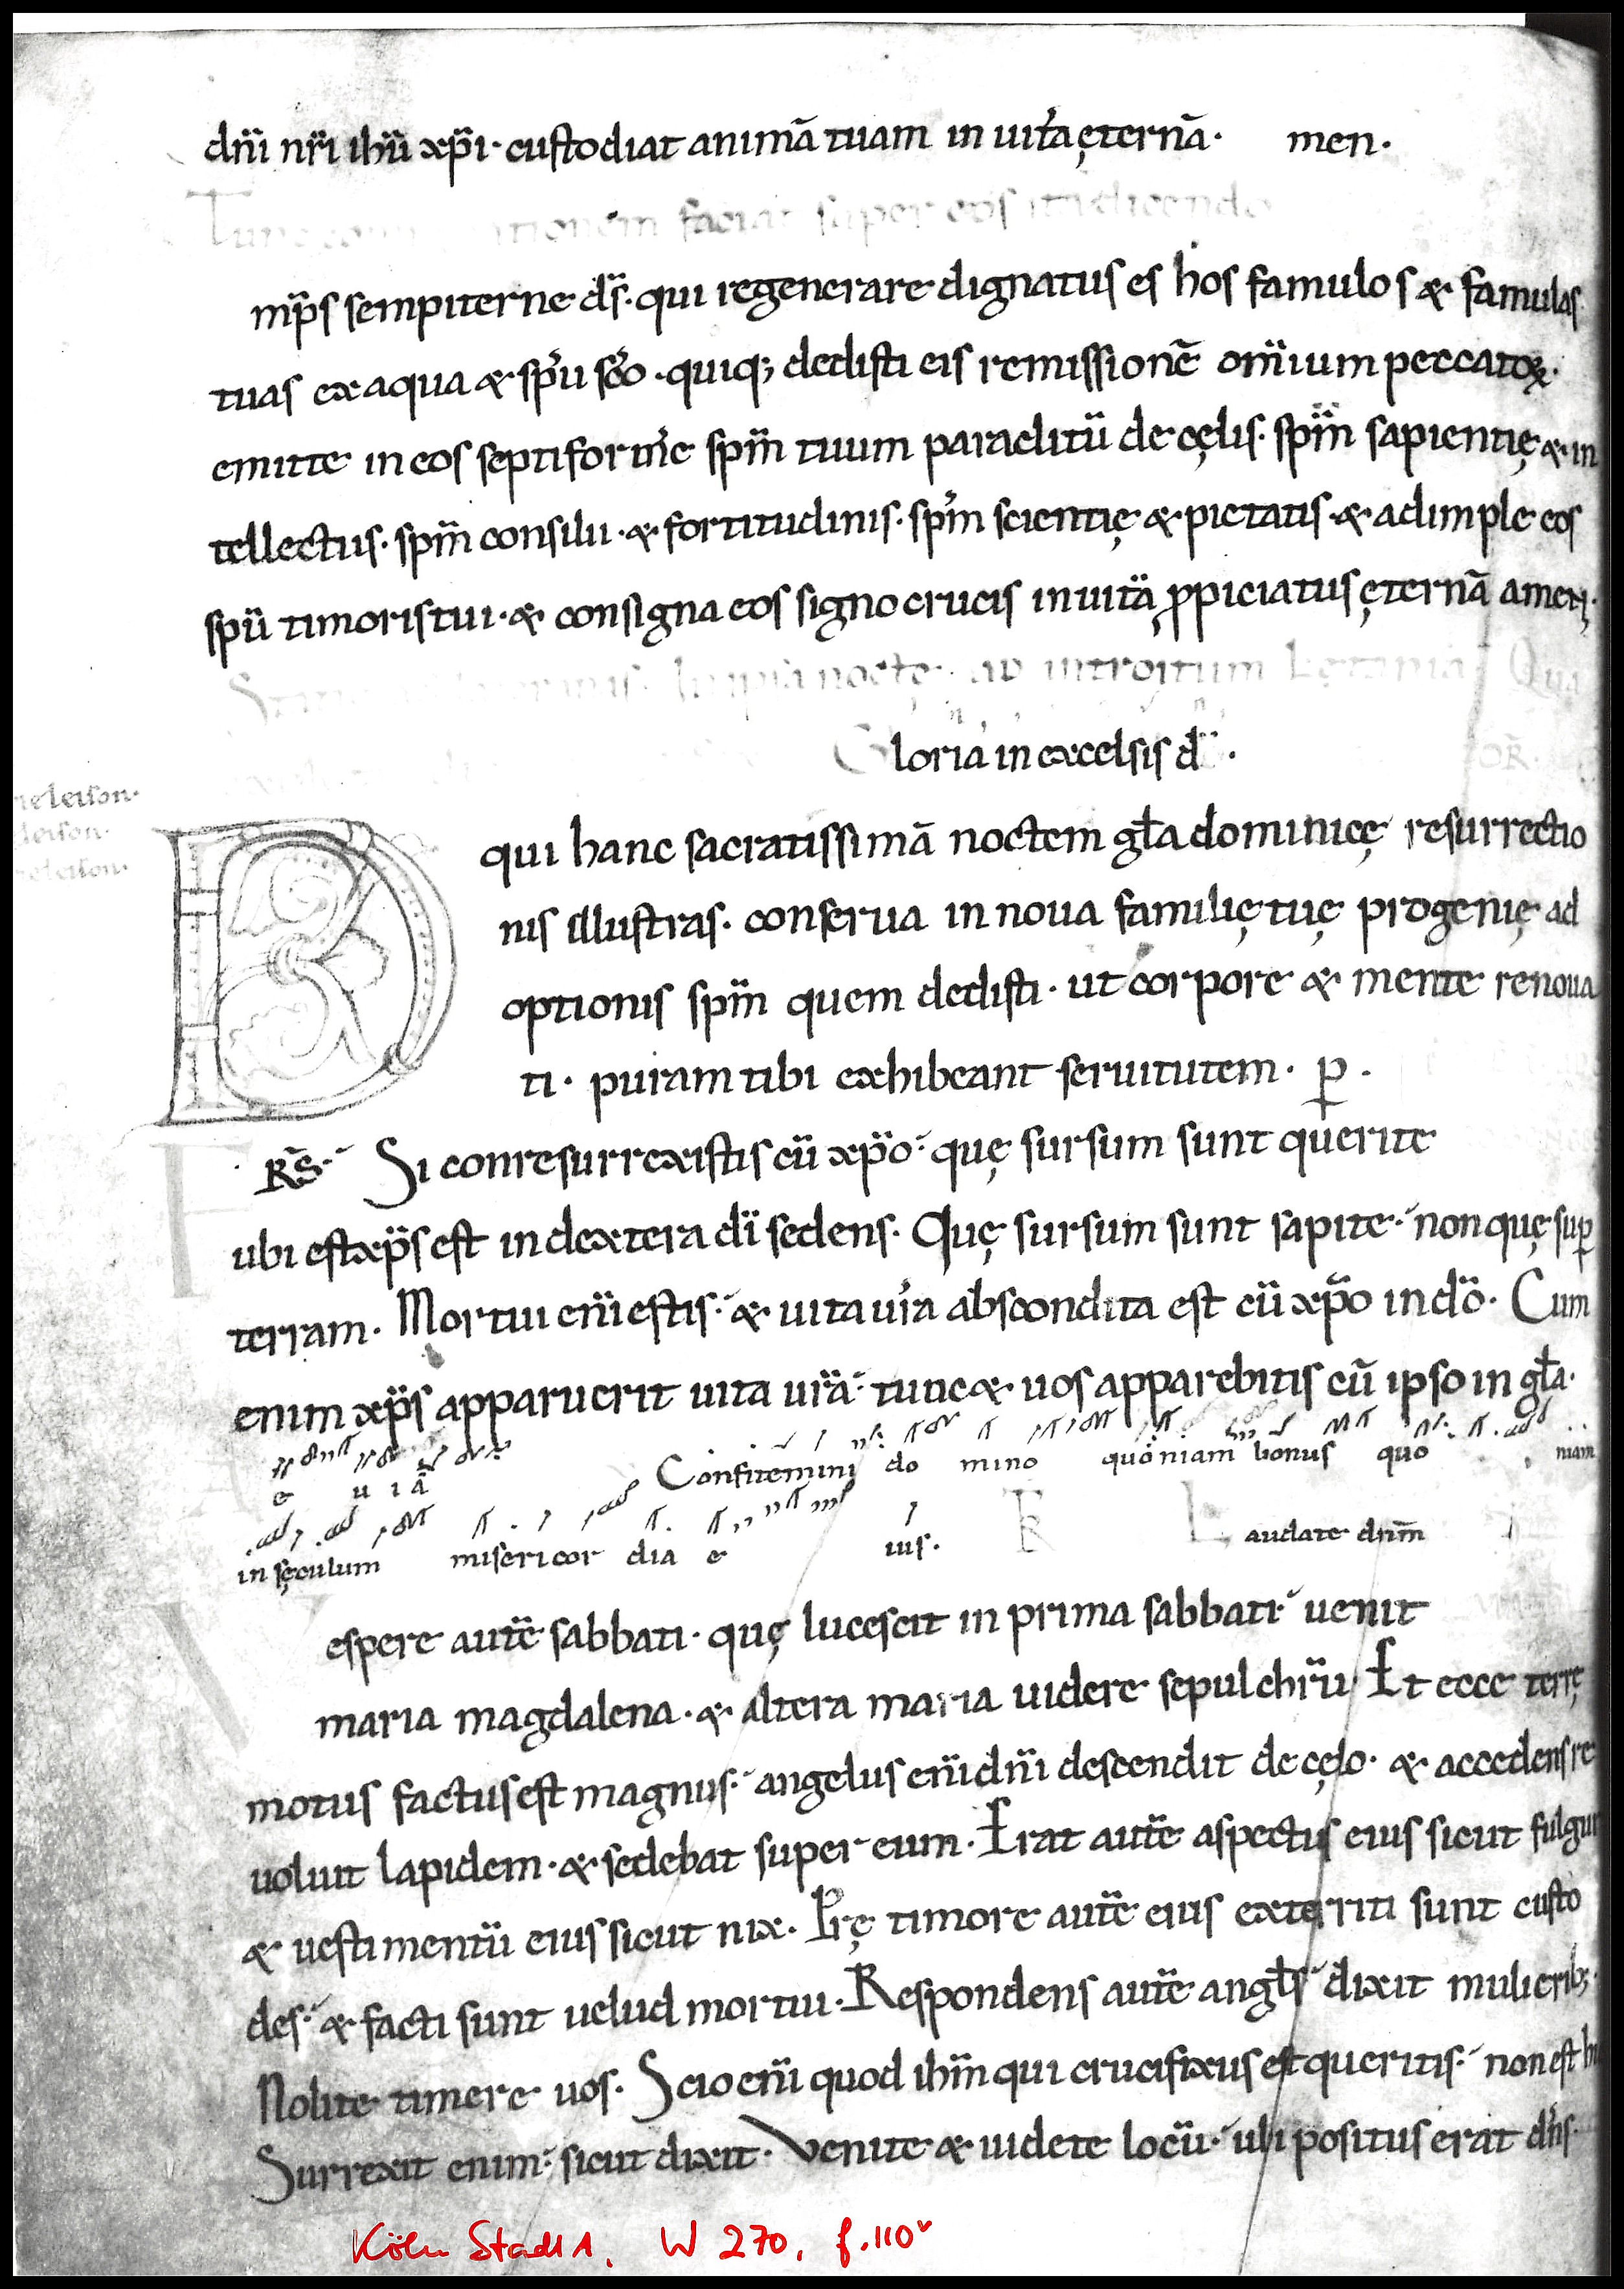 dn̄i nr̄i ihū xp̄i · custodiat animā tuam in uitā ęternā · men ·
faciat super eos ita dicendo
mp̄s sempiterne ds̄ · qui regenerare dignatus es hos famulos & famulas
tuas ex aqua & sp̄u sc̄o · quiq; dedisti eis remissionē om̄ium peccatoꝝ ·
emitte in eos septiformē sp̄m tuum paraclitū de cęlis · sp̄m sapientię & in
tellectus · sp̄m consilii · & fortitudinis · sp̄m scientię & pietatis · & adimple eos
sp̄u timoris tui · & consigna eos signo crucis in uitā ꝓpiciatus ęternā amen ·
nocte · ad introitum Lętania
loria in excelsis d ·
leison ·
leison ·
leison ·
D qui hanc sacratissimā noctem gl̄a dominicę resurrectio
nis illustras · conserua in noua familię tuę progenię ad
optionis sp̄m quem dedisti · ut corpore & mente renoua
ti · puram tibi exhibeant seruitutem · p̲ ·
R̄S · Si conresurrexistis cū xp̄o · quę sursum sunt querite
ubi est xp̄s est in dextera dī sedens · Quę sursum sunt sapite · non quę sup̲
terram · Mortui eni̅ estis · & uita ur̄a abscondita est cū xp̄o in dō · Cum
enim xp̄s apparuerit uita ur̄a · tunc & uos apparebitis cū ipso in gl̄a ·
e u i a Confitemini do mino quoniam bonus quo niam
in sęculum misericor dia e ius · L audate dn̄m
espere autē sabbati · quę lucescit in prima sabbati · uenit
maria magdalena · & altera maria uidere sepulchrū · Et ecce terrę
motus factus est magnus · angelus eni̅ dn̄i descendit de cęlo · & accedens re
uoluit lapidem · & sedebat super eum · Erat autē aspectus eius sicut fulgur
& uestimentū eius sicut nix · Prę timore autē eius exterriti sunt custo
des · & facti sunt uelud mortui · Respondens autē angl̄s dixit mulierib;
Nolite timere uos · Scio eni̅ quod ihm̄ qui crucifixus est queritis · non est hi
Surrexit enim · sicut dixit · Venite & uidete locū · ubi positus erat dn̄s ·
Köln StadtA, W 270, f. 110ᵛ